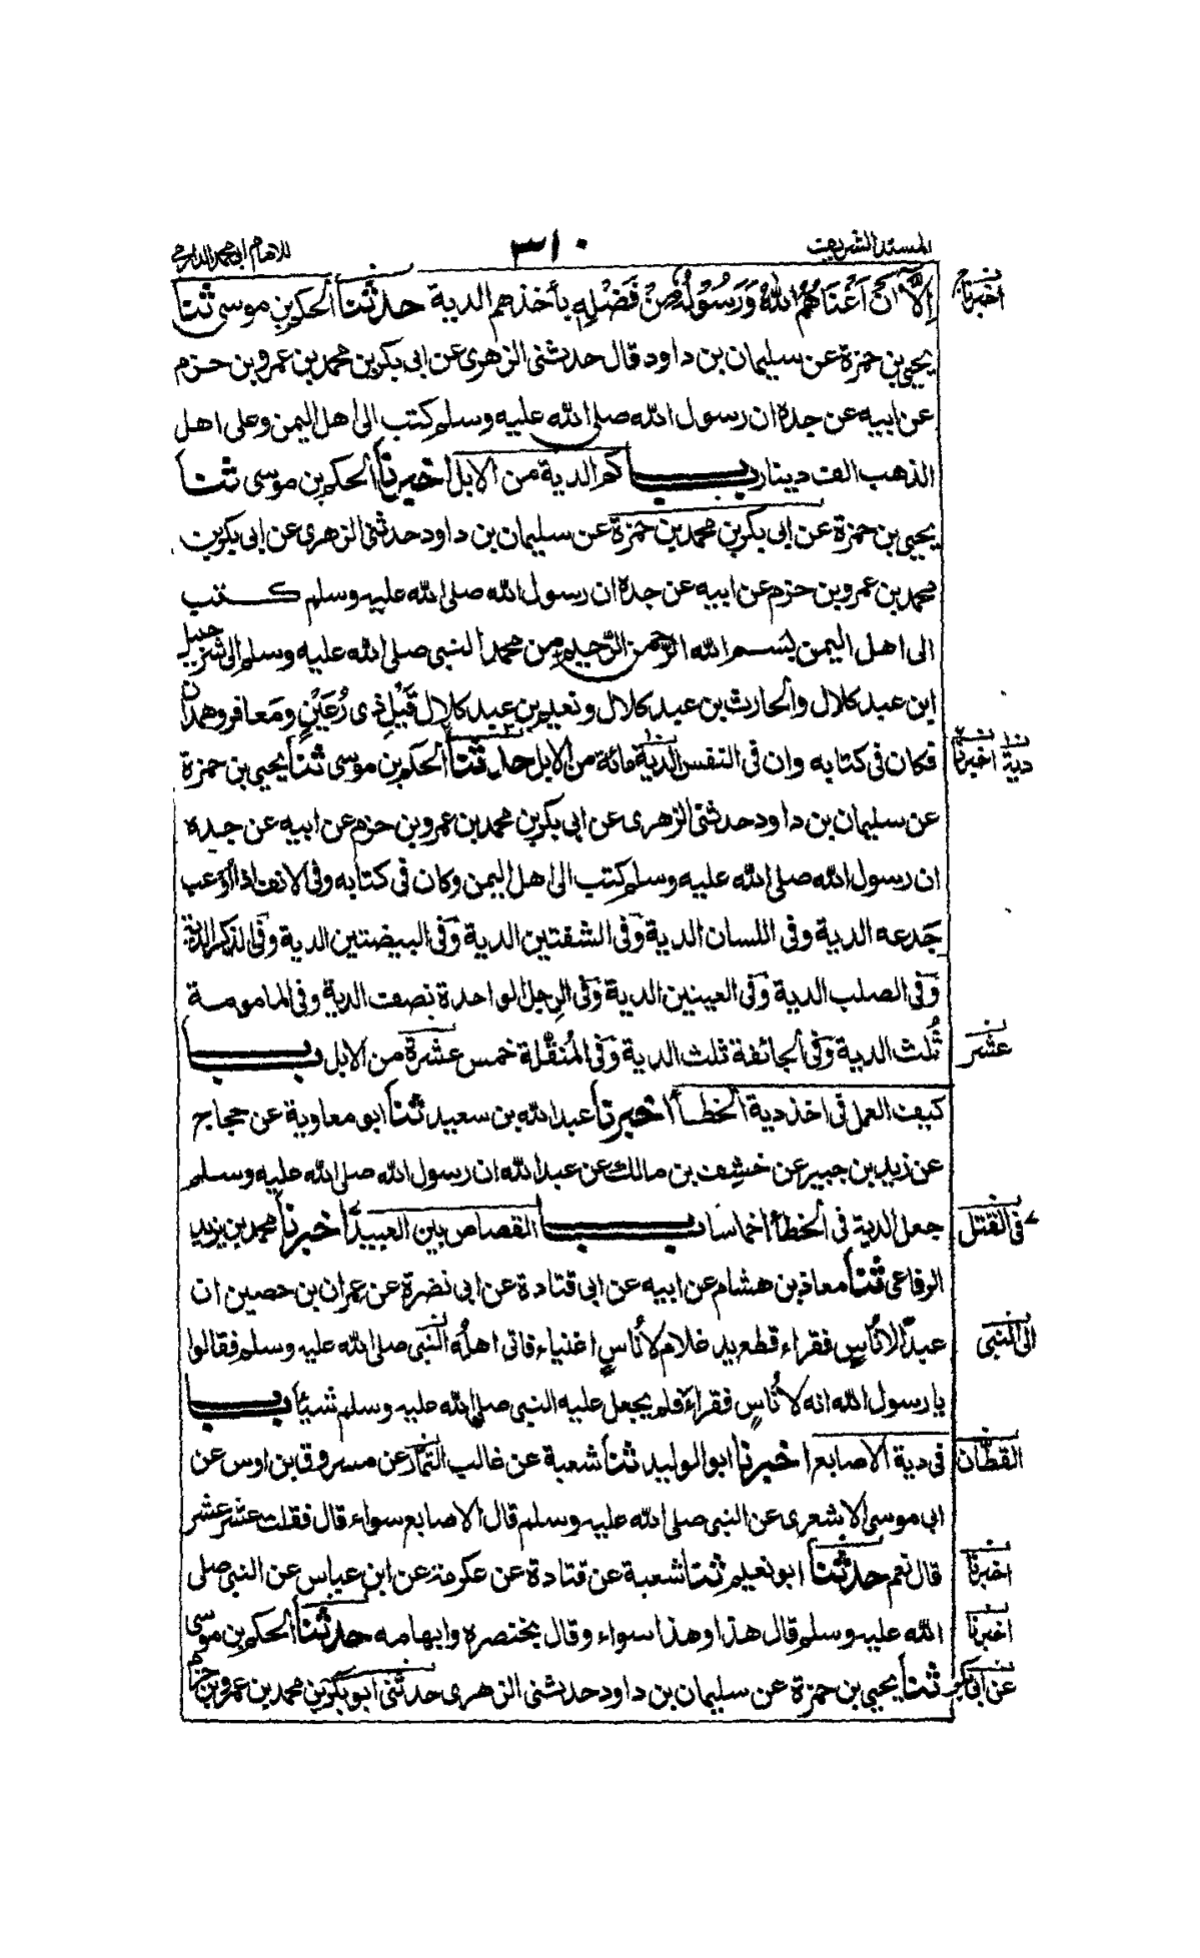 المسند الشريف
٣١٠
للامام ابى محمد الدارمى
اِلَّا اَنْ اَغْنَاهُمُ اللهُ وَرَسُوْلُهُ مِنْ فَضْلِهٖ بأخذهم الدية حدثنا الحكم بن موسى ثنا
اخبرنا
يحيى بن حمزة عن سليمان بن داود قال حدثنى الزهرى عن ابى بكر بن محمد بن عمرو بن حزم
عن ابيه عن جده ان رسول الله صلى الله عليه وسلم كتب الى اهل اليمن وعلى اهل
الذهب الف دينار باب كم الدية من الابل اخبرنا الحكم بن موسى ثنا
يحيى بن حمزة عن ابى بكر بن محمد بن حمزة عن سليمان بن داود حدثنى الزهرى عن ابى بكر بن
محمد بن عمرو بن حزم عن ابيه عن جده ان رسول الله صلى الله عليه وسلم كتب
الى اهل اليمن بسم الله الرحمن الرحيم من محمد النبى صلى الله عليه وسلم الى شرحبيل
ابن عبد كلال والحارث بن عبد كلال ونعيم بن عبد كلال قَيْلِ ذى رُعَيْنٍ ومَعافر وهمدان
فكان فى كتابه وان فى النفس الدية مائة من الابل حدثنا الحكم بن موسى ثنا يحيى بن حمزة
دية اخبرنا
عن سليمان بن داود حدثنى الزهرى عن ابى بكر بن محمد بن عمرو بن حزم عن ابيه عن جده
ان رسول الله صلى الله عليه وسلم كتب الى اهل اليمن وكان فى كتابه وفى الانف اذا أوعب
جَدعه الدية وفى اللسان الدية وفى الشفتين الدية وفى البيضتين الدية وفى الذكر الدية
وفى الصلب الدية وفى العينين الدية وفى الرجل الواحدة نصف الدية وفى المامومة
ثُلث الدية وفى الجائفة ثلث الدية وفى المُنَقِّلة خمس عشرة من الابل باب
عشر
كيف العمل فى اخذ دية الخطأ اخبرنا عبد الله بن سعيد ثنا ابو معاوية عن حجاج
عن زيد بن جبير عن خشف بن مالك عن عبد الله ان رسول الله صلى الله عليه وسلم
جعل الدية فى الخطأ اخماسا باب القصاص بين العبيد اخبرنا محمد بن يزيد
فى القتل
الرفاعى ثنا معاذ بن هشام عن ابيه عن ابى قتادة عن ابى نضرة عن عمران بن حصين ان
عبدًا لاناسٍ فقراء قطع يد غلام لاُناسٍ اغنياء فاتى اهلُه النبى صلى الله عليه وسلم فقالوا
الى النبى
يا رسول الله انه لاُناسٍ فقراءَ فلم يجعل عليه النبى صلى الله عليه وسلم شيئا باب
فى دية الاصابع اخبرنا ابو الوليد ثنا شعبة عن غالب التمار عن مسروق بن اوس عن
القطان
ابى موسى الاشعرى عن النبى صلى الله عليه وسلم قال الاصابع سواء قال فقلت عشر عشر
قال نعم حدثنا ابو نعيم ثنا شعبة عن قتادة عن عكرمة عن ابن عباس عن النبى صلى
اخبرنا
الله عليه وسلم قال هذا وهذا سواء وقال بخنصره وابهامه حدثنا الحكم بن موسى
اخبرنا
ثنا يحيى بن حمزة عن سليمان بن داود حدثنى الزهرى حدثنى ابو بكر بن محمد بن عمرو بن حزم
عن ابى بكر